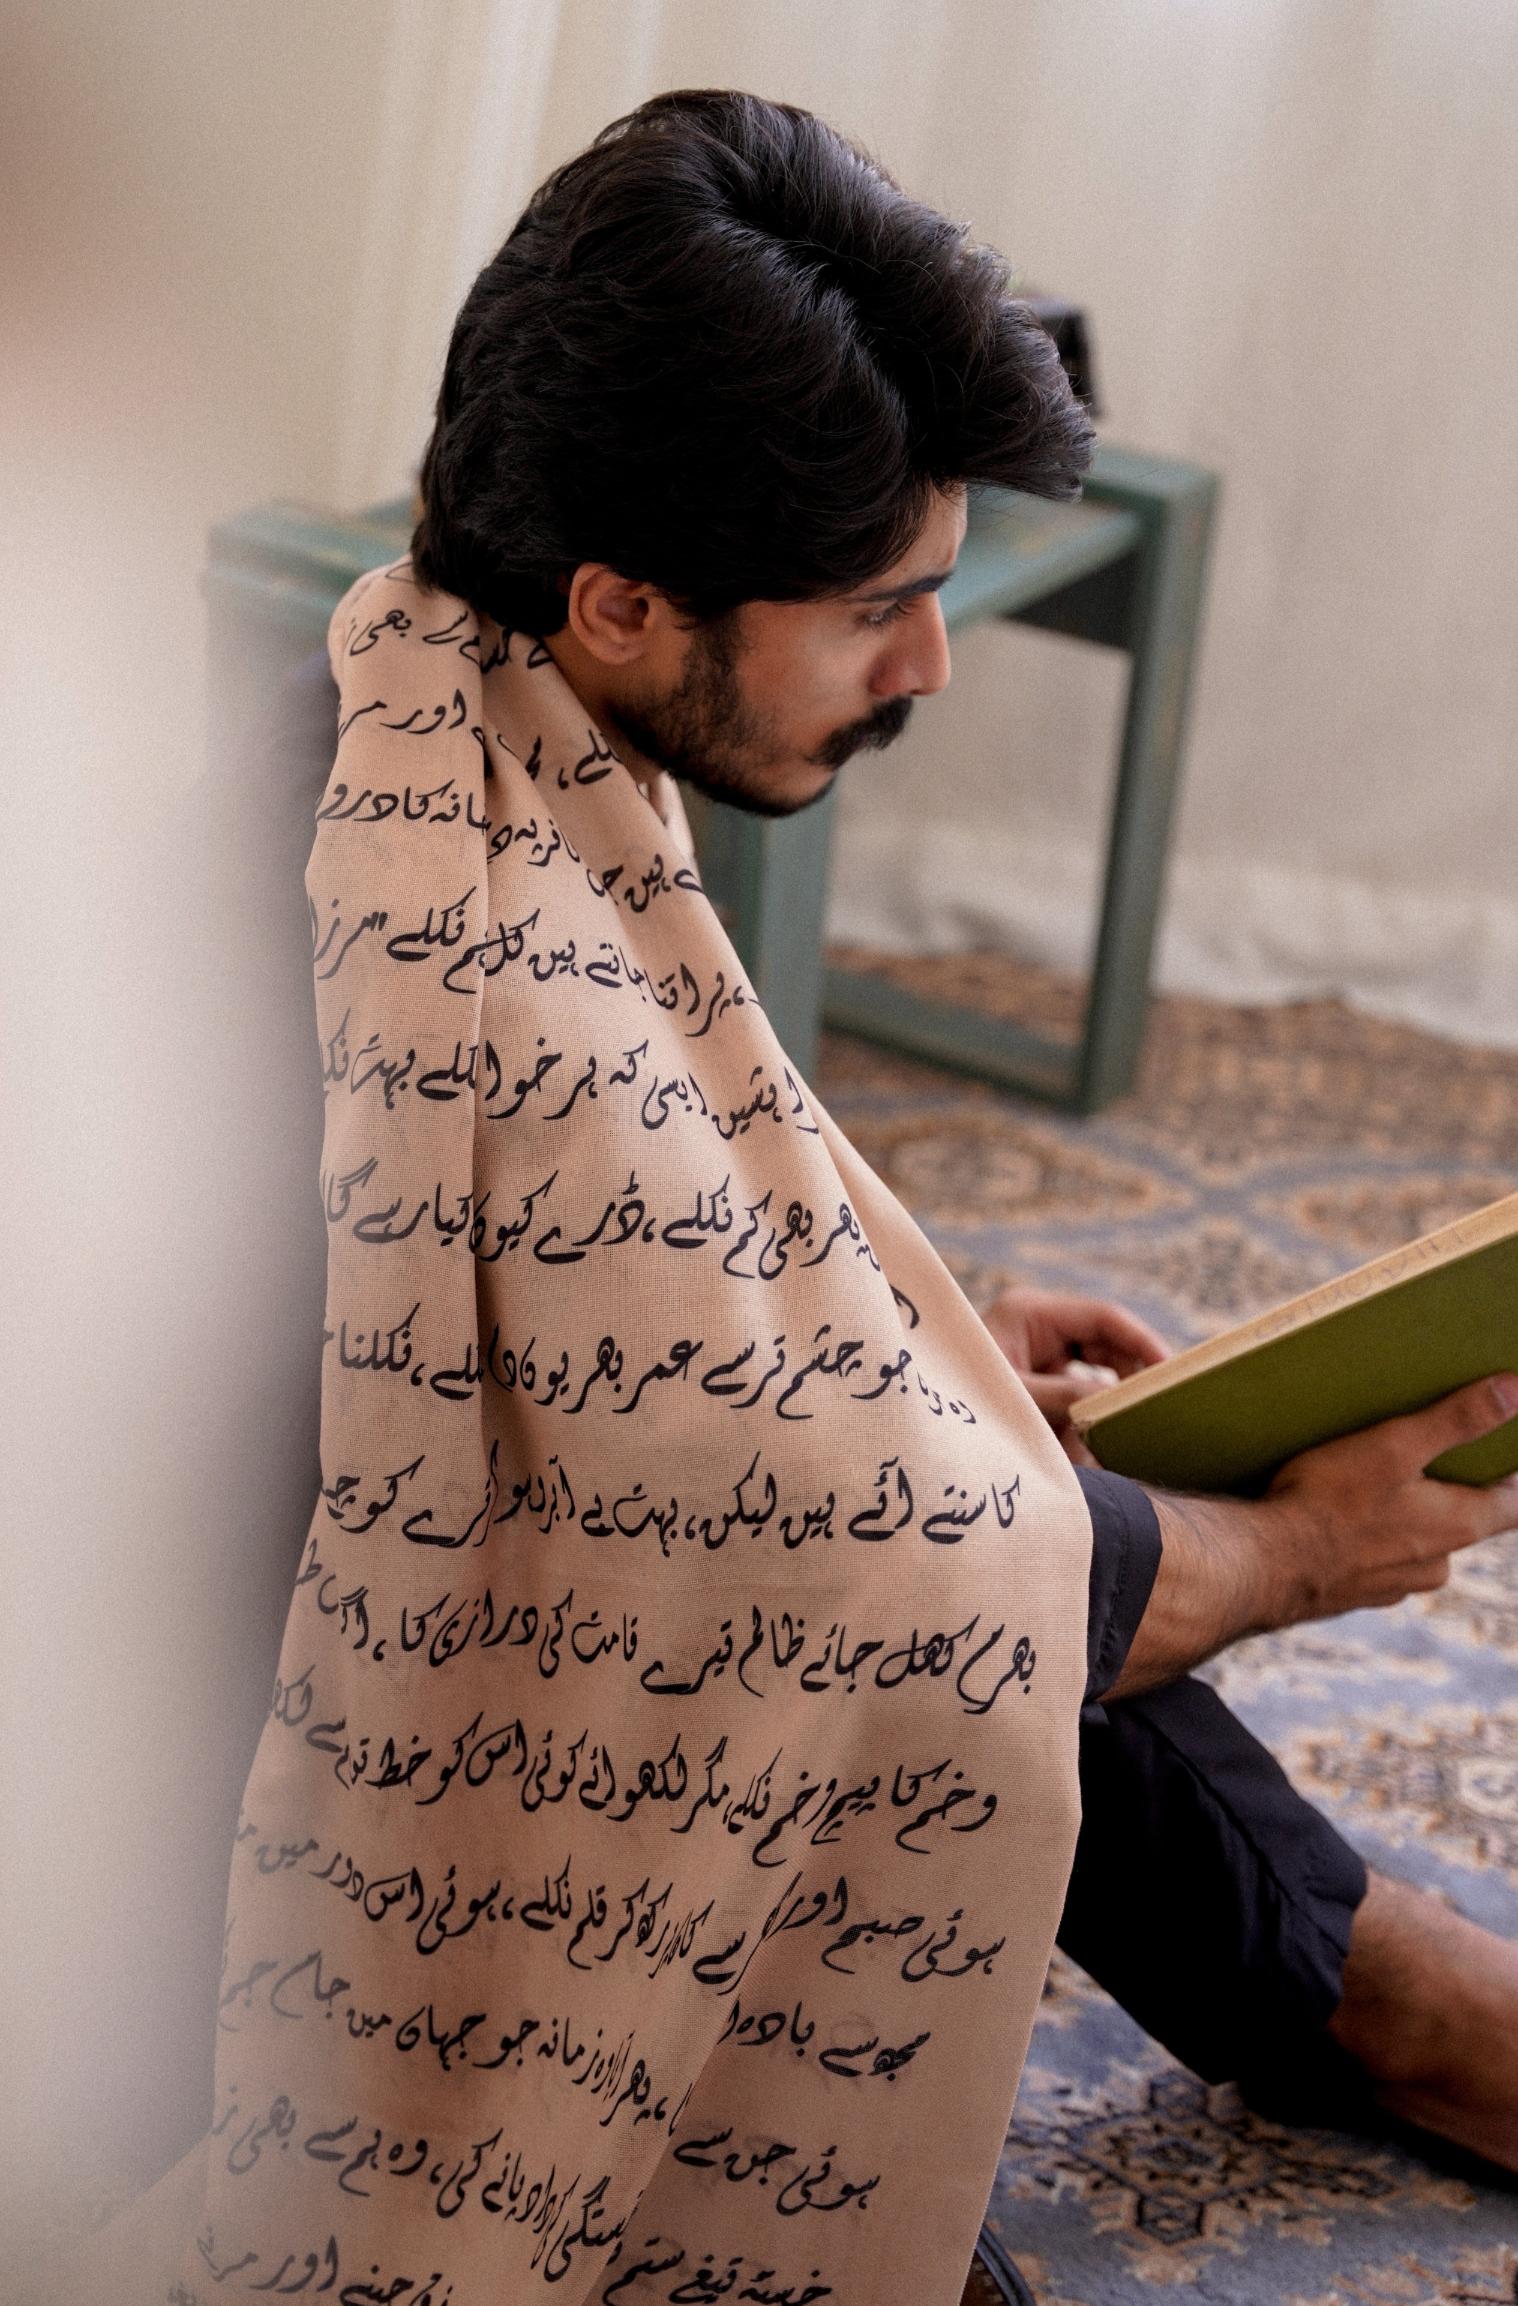 بھی
اور مر
نکلے،
خانہ کا درو
ہیں
،پر اتنا جانتے ہیں کل ہم نکلے "مرزا
خواہشیں ایسی کہ ہر خوا نکلے بہت نکلے
پھر بھی کم نکلے، ڈرے کیوں کیا رہے گا
جو چشم تر سے عمر بھر یوں د نکلے، نکلنا
کا سنتے آئے ہیں لیکن، بہت بے آبرو ہو ترے کوچے
بھرم کھل جائے ظالم تیرے قامت کی درازی کا، اگر
و خم کا پیچ و خم نکلے، مگر لکھوائے کوئی اس کو خط تو سے
ہوئی صبح اور سے کان پر رکھ کر قلم نکلے، ہوئی اس دور میں
مجھ سے بادہ ، پھر آیا وہ زمانہ جو جہاں میں جام جم
ہوئی جن سے خستگی کی داد پانے کی، وہ ہم سے بھی
خستہ تیغ ستم جینے اور مرنے